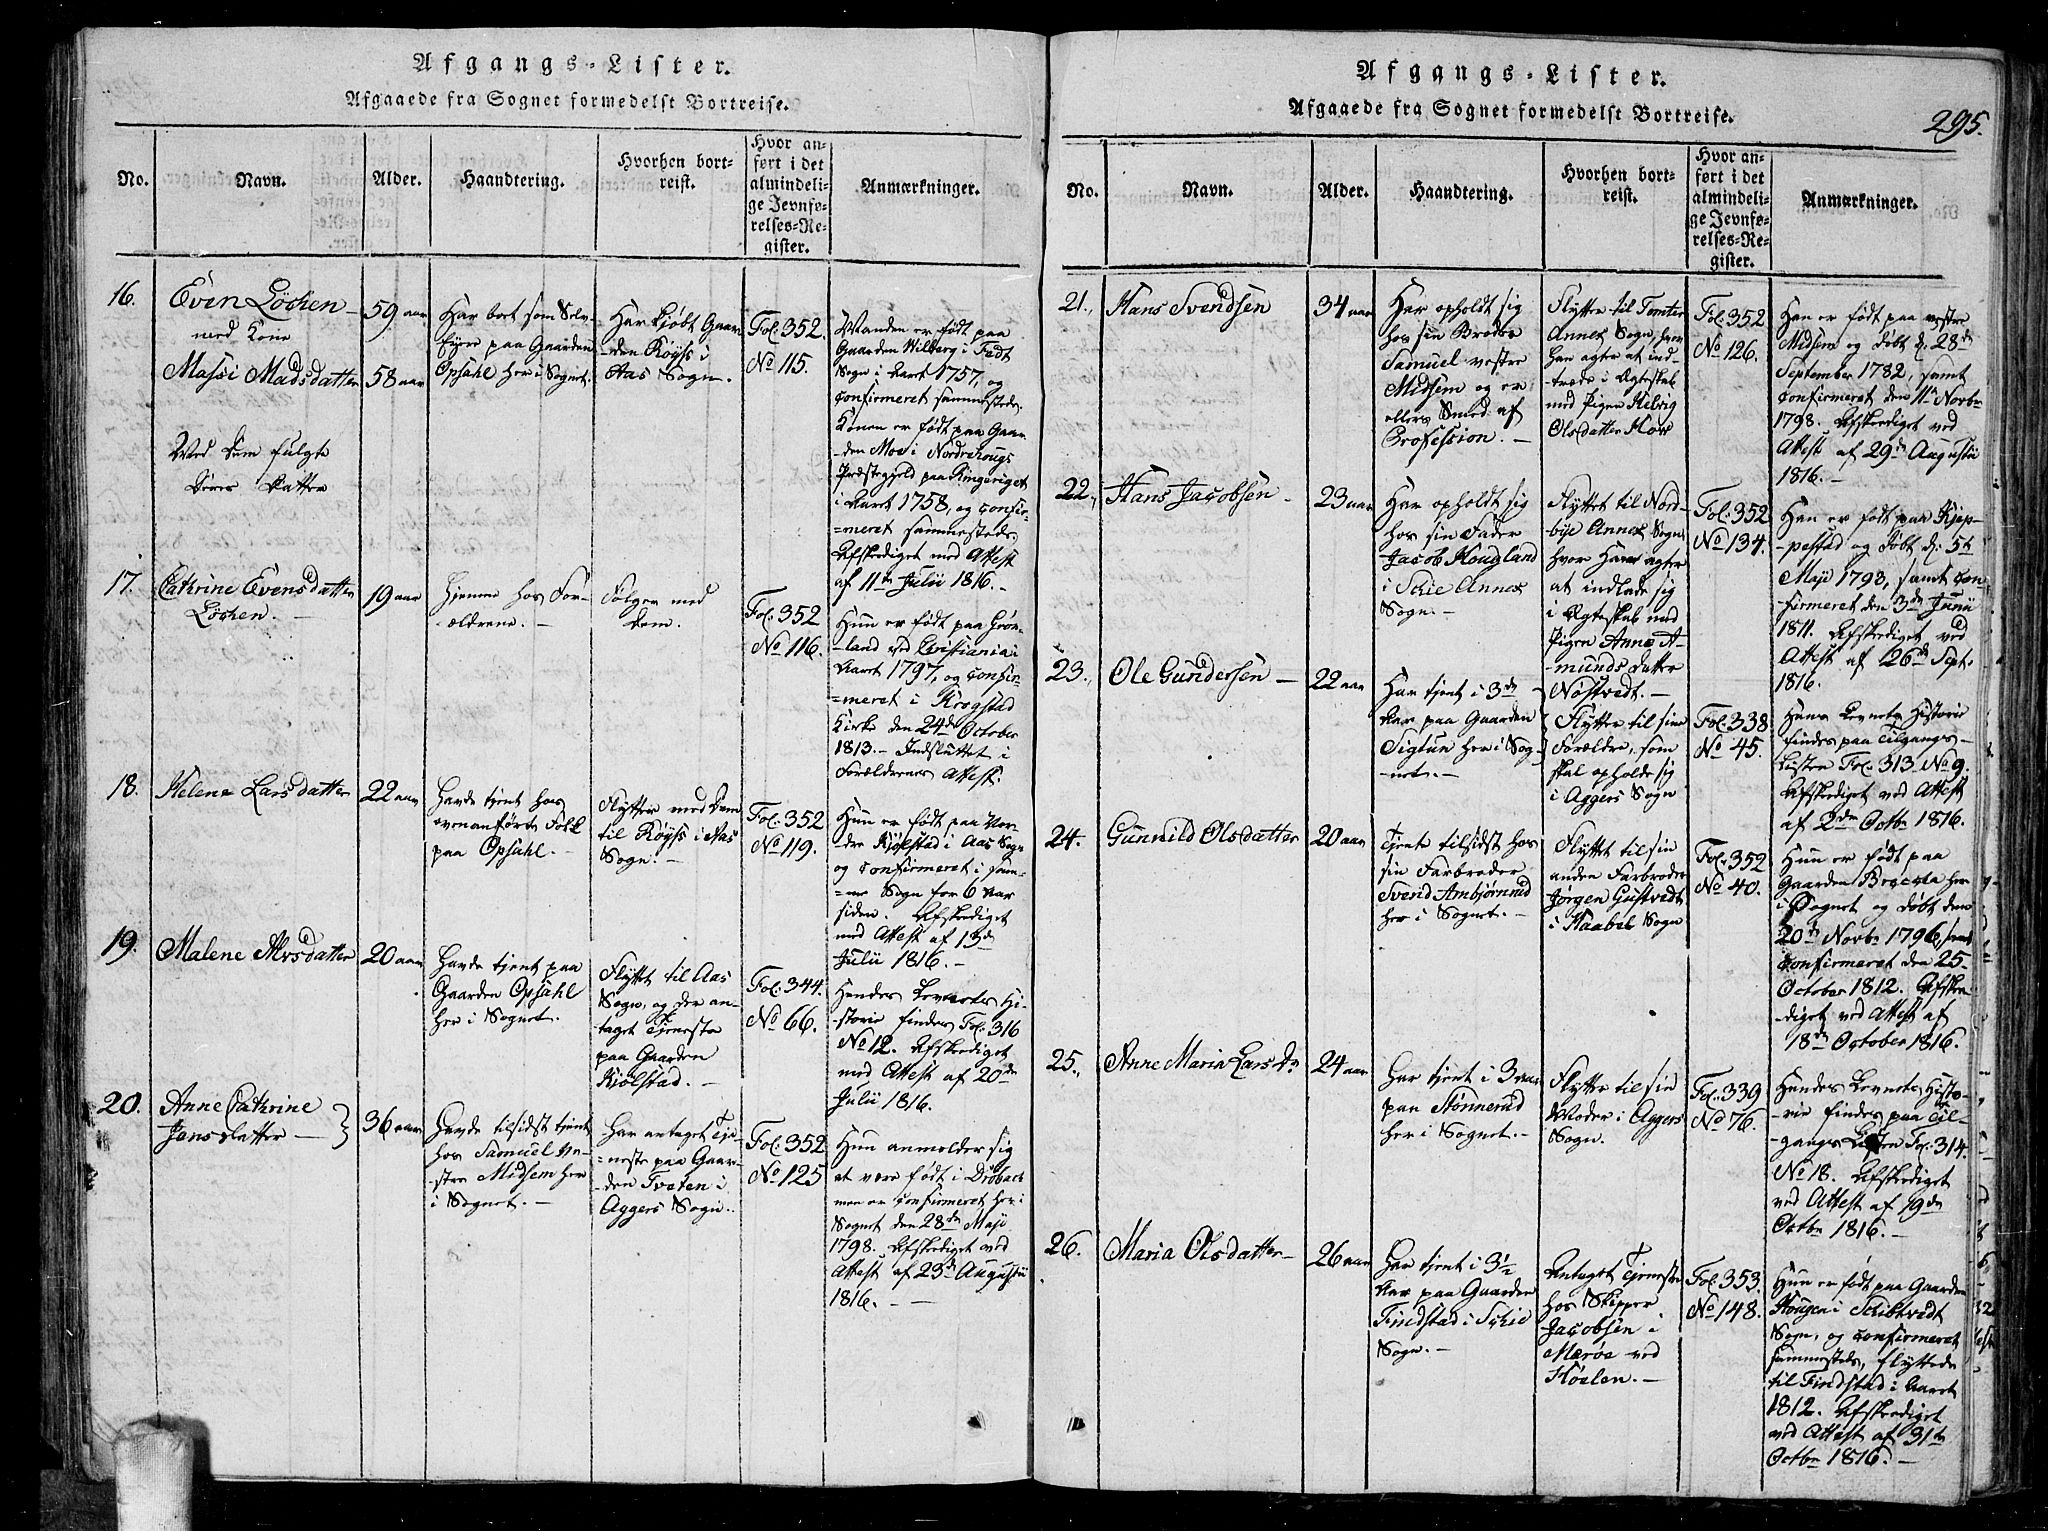 Afgangs-Lister.
Afgaaede fra Sognet formedelst Bortreise.
No.
Navn.
Alder.
Haandtering.
Hvorhen bort-
reist.
Hvor an-
ført i det
almindeli-
ge Jevnfø-
relses-Re-
gister.
Anmærkninger.
16.
Even Löchen
med Kone
Massi Madsdatter
Med dem fulgte
deres datter
59 aar
58 aar
Har boet som Selv-
eyer paa Gaarden
Opsahl her i Sognet.
Har kjöbt Gaar-
den Röyss i
Aas Sogn.
Fol: 352.
No 115.
Manden er födt paa
Gaarden Wilberg i Fedt
Sogn i Aaret 1757, og
confirmeret sammesteds.
Konen er födt paa Gaar-
den Moe i Nordrehougs
Præstegjeld paa Ringeriget
i Aaret 1758, og confir-
=meret sammesteds
Afskediget med Attest
af 11te Julii 1816. -
17.
Cathrine Evensdatter
Löchen. -
19 aar
Hjemme hos For-
ældrene. -
Fölger med
dem.
Fol: 352
No 116.
Hun er födt paa Grön-
-land ved Cristiania i
Aaret 1797, og confir-
=meret i Krogstad
Kirke den 24de October
1813. - Indsluttet i
Forældrenes Attest.
18.
Helene Larsdatter
22 aar
Havde tjent hos
ovenanförte Folk
paa Opsahl. -
Flytter med dem
til Röyss i Aas
Sogn. -
Fol: 352
No 119.
Hun er födt paa Ner-
dre Kjölstad i Aas Sogn
og confirmeret i sam-
=me Sogn for 6 Aar
siden. Afskediget
med Attest af 13de
Julii 1816. -
19.
Malene Arsdatter
20 aar
Havde tjent paa
Gaarden Opsahl
her i Sognet.
Flyttet til Aas
Sogn, og der an-
taget Tjeneste
paa Gaarden
Kiölstad. -
Fol: 344.
No 66.
Hendes Levnets Hi-
-storie findes Fol: 316
No 12. Afskediget
med Attest af 20de
Julii 1816.
20.
Anne Cathrine
Jensdatter -
36 aar
Havde tilsidst tjent
hos Samuel ve-
stre Midsem her
i Sognet. -
Har antaget Tje-
=neste paa Gaar-
den Tveten i
Aggers Sogn.
Fol: 352
No 125
Hun anmelder sig
at være födt i Dröbach
men er confirmeret her i
Sognet den 28de Maji
1798. Afskediget med
Attest af 23de Augustii
1816. -
Afgangs-Lister.
Afgaaede fra Sognet formedelst Bortreise.
295.
No.
Navn.
Alder.
Haandtering.
Hvorhen bort-
reist.
Hvor an-
ført i det
almindeli-
ge Jevnfø-
relses-Re-
gister.
Anmærkninger.
21.
Hans Svendsen
34 aar
Har opholdt sig
hos sin Broder
Samuel vestre
Midsem og er
ellers Smed af
Profession. -
Flytter til Tomter
Annex Sogn, hvor
han agter at ind-
træde i Ægteskab
med Pigen Helvig
Olsdatter Hov
Fol: 352
No 126.
Han er födt paa vestre
Midsem og döbt d. 28de
September 1782, samt
confirmeret den 11te Novbr
1798. Afskediget ved
Attest af 29de Augustii
1816. -
22.
Hans Jacobsen
23 aar
Har opholdt sig
hos sin Fader
Jacob Hougland
i Schie Annex
Sogn. -
Flyttet til Nord-
bye Annex Sogn
hvor Han agter
at indlade sig
i Ægteskab med
Pigen Anne A-
mundsdatter
Nöstvedt. -
Fol: 352
No 134.
Han er födt paa Kjep-
-pestad og döbt d. 5te
Maji 1793, samt con-
firmeret den 3de Junii
1811. Afskediget ved
Attest af 26de Sept:
1816.
23.
Ole Gundersen -
22 aar
Har tjent i 3de
Aar paa Gaarden
Sigtun her i Sog-
-net. -
Flytter til sine
Forældre, som
skal opholde sig
i Aggers Sogn
Fol: 338
No 45.
Hans Levnets Historie
findes paa Tilgangs-
Listen Fol: 313 No 9.
Afskediget ved Attest
af 2den Octbr 1816.
24.
Gunnild Olsdatter
20 aar
Tjente tilsidst hos
sin Farbroder
Svend Ambjörnrud
her i Sognet. -
Flyttet til sin
anden Farbroder
Jörgen Gustvedt
i Haabel Sogn
Fol: 352
No 40.
Hun er födt paa
Gaarden her
i Sognet og döbt den
20de Novbr 1796, samt
confirmeret den 25
October 1812. Afske-
diget ved Attest af
18de October 1816.
25.
Anne Maria Larsdr
24 aar
Har tjent i 3 aar
paa Stönnerud
her i Sognet. -
Flytter til sin
Moder i Aggers
Sogn.
Fol: 339
No 76.
Hendes Levnets Histo-
-rie findes paa Til-
-gangs Listen Fol: 314.
No 18. Afskediget
ved Attest af 19de
Octbr 1816. -
26.
Maria Olsdatter -
26 aar
Har tjent i 3½
Aar paa Gaarden
Findstad i Schie
Sogn. -
Antaget Tjeneste
hos Skipper
Jacobsen i
Meröe ved
Höelen. -
Fol: 353.
No 148.
Hun er födt paa Gaarden
Hougen i Schibtvedt
Sogn, og confirmeret
sammesteds, flyttede
til Findstad i Aaret
1812. Afskediget
ved Attest af 31te
Octbr 1816. -